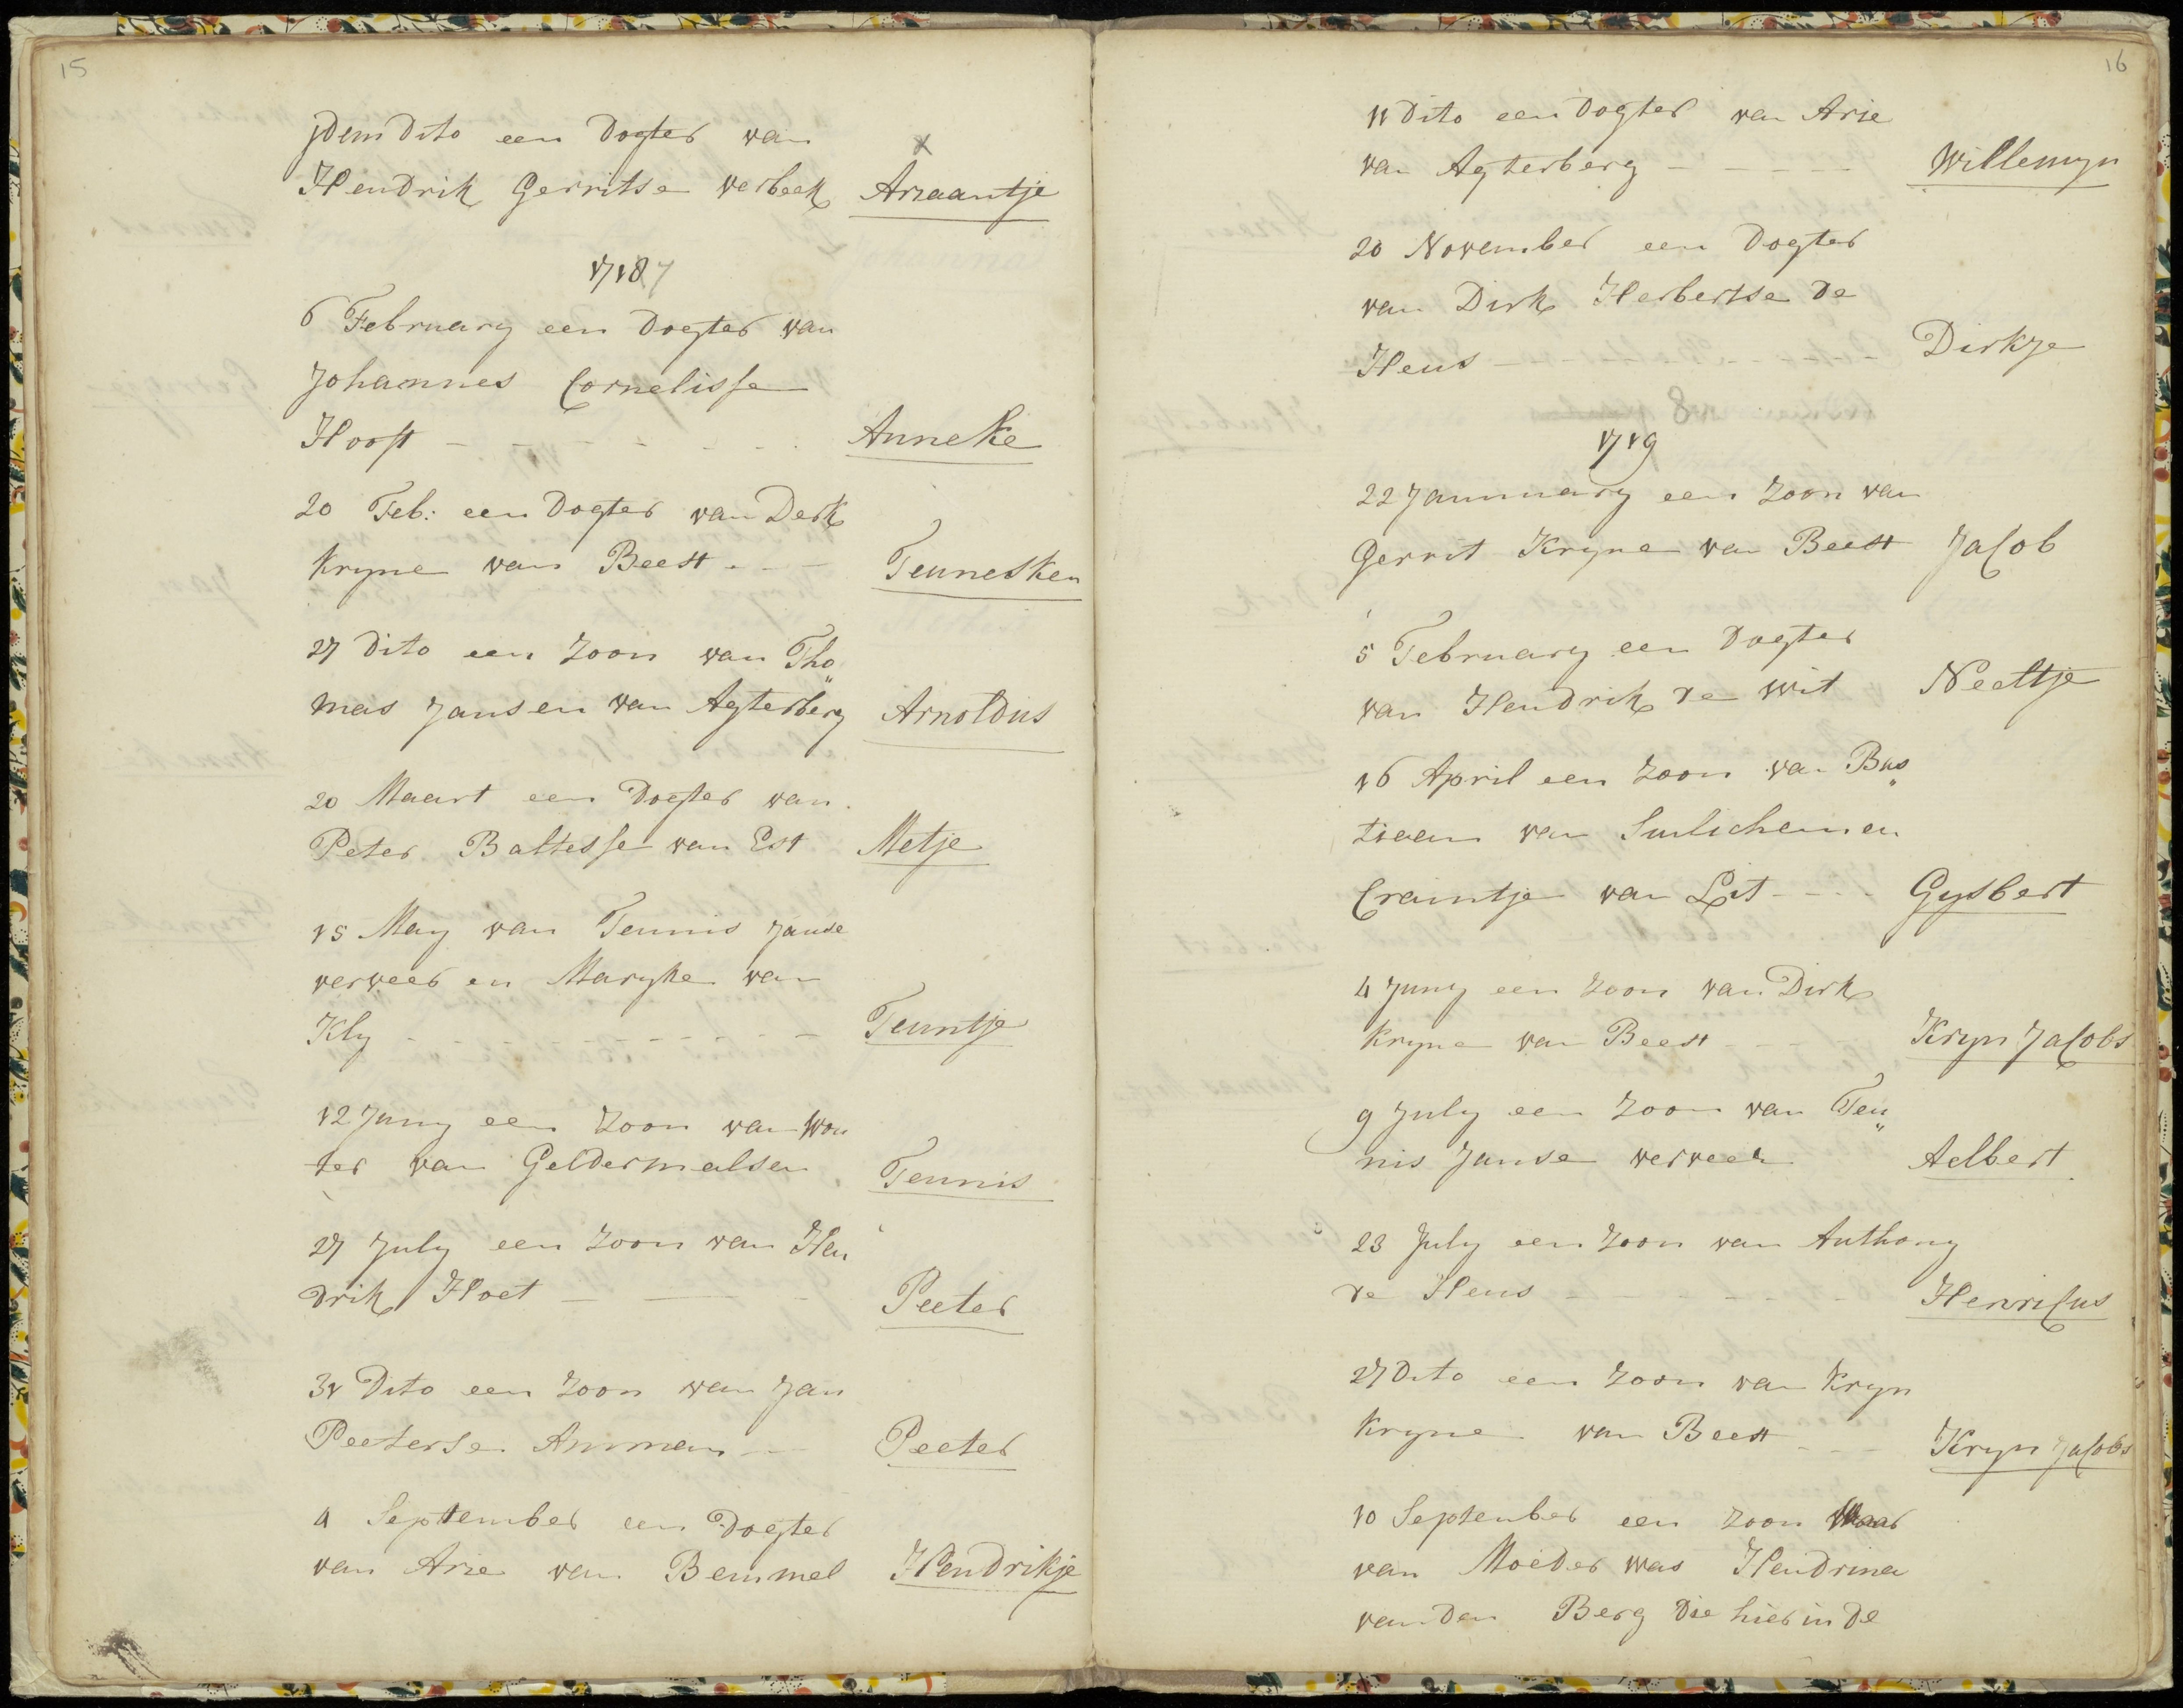 15
jdem dito een Dogter van
Hendrik Gerritse verbeek Ariaantje
1718 7
6 February een Dogter van
Johannes Cornelisse
Hooft - - - - - - Anneke
20 Feb: een Dogter van Derk
kryne van Beest - - - Teunesken
27 dito een Zoon van Tho„
mas Jansen van Agterberg Arnoldus
20 Maart een Dogter van
Peter Baltesse van Est Metje
15 May van Teunis Janse
verweer en Maryke van
Kly - - - - - - - - Teuntje
12 Juny een Zoon van Wou
ter van Geldermalsen Teunis
27 July een Zoon van Hen
drik Hoet - - - Peeter
31 Dito een Zoon van Jan
Peeterse Amman - - Peeter
4 September een Dogter
van Arie van Bemmel Hendrikje
16
11 Dito een Dogter van Arie
van Agterberg - - - - - Willemyn
20 November een Dogter
van Dirk Herbertse de
Heus - - - - - - - Dirkje
8
1719
22 Jannuary een Zoon van
Gerrit Kryne van Beest Jacob
5 February een Dogter
van Hendrik de Wit Neeltje
16 April een Zoon van Bas„
tiaan van Suilichem en
Craintje van Lit - - - Gysbert
4 Juny een Zoon van Dirk
kryne van Beest - - - - Kryn Jacobs
9 July een Zoon van Teu„
nis Janse verweer Aelbert
23 July een Zoon van Anthony
de Heus - - - - - - - Henricus
27 Dito een Zoon van Kryn
kryne van Beest - - - Kryn Jacobs
10 September een Zoon Waar
van Moeder was Hendrina
van den Berg die hier in de